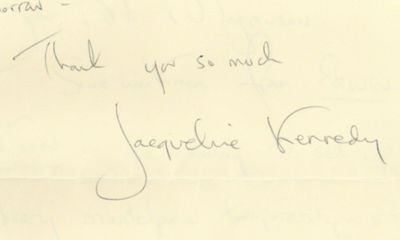 Thank you so much
Jacqueline Kennedy